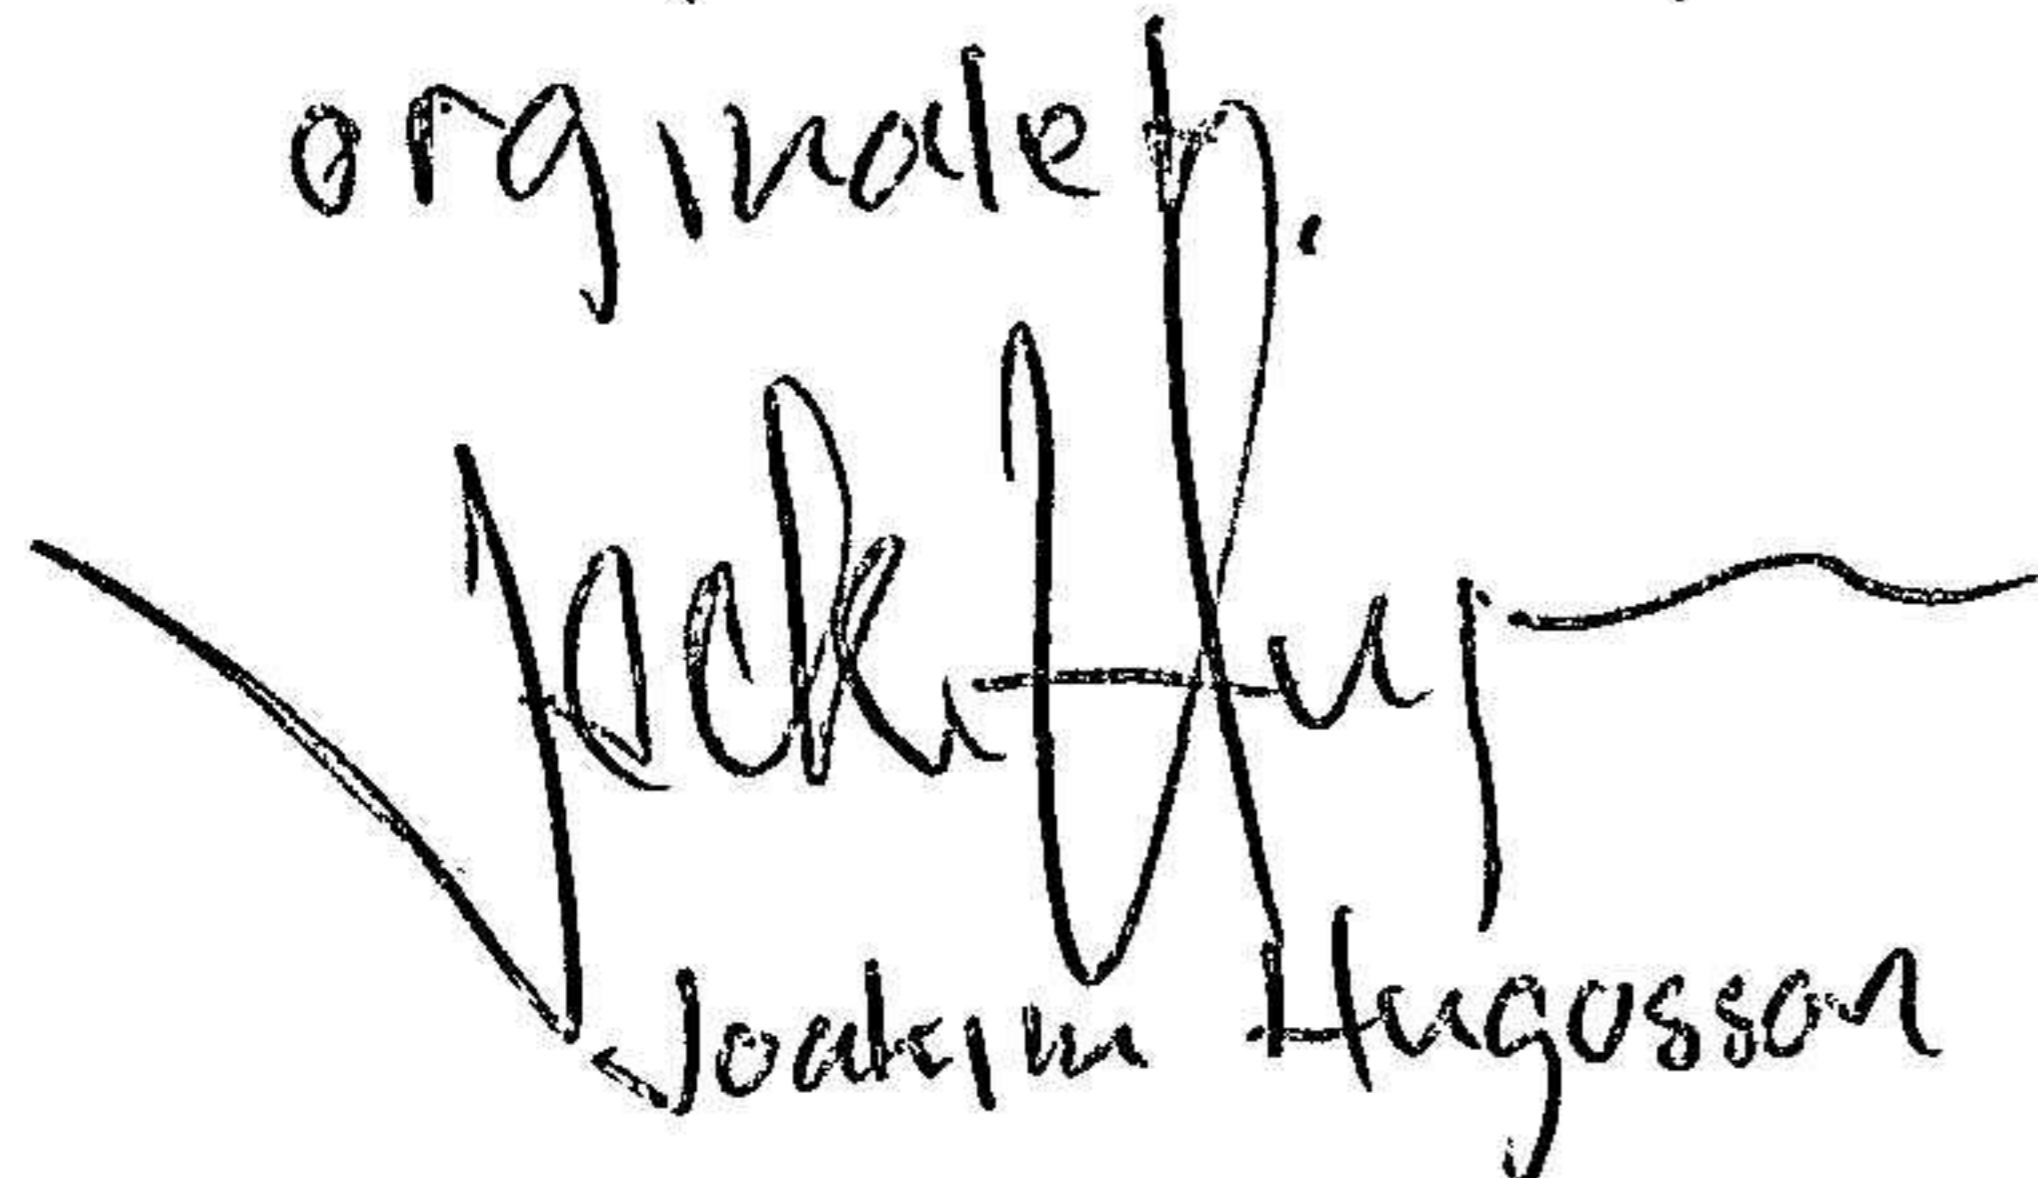 orginalet.
Joakim Hugosson